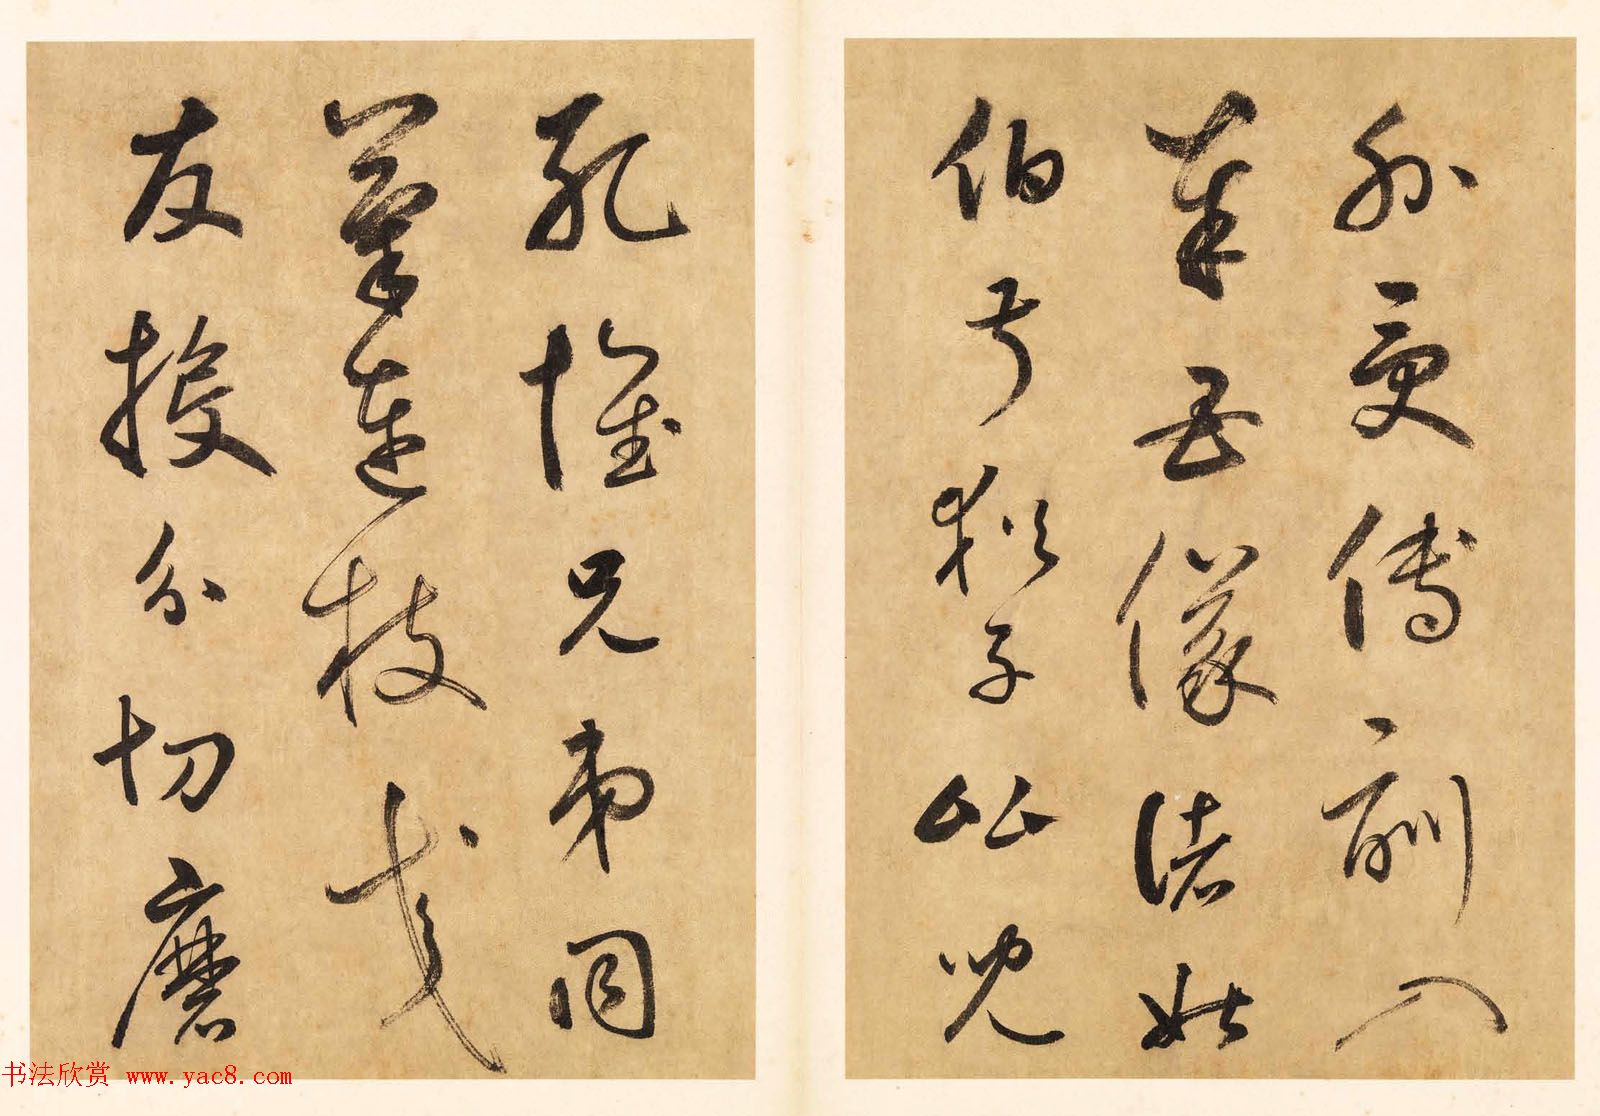 外受傅訓入
奉母儀諸姑
伯叔猶子比兒
孔懷兄弟同
氣連枝交
友投分切磨
书法欣赏 www.yac8.com